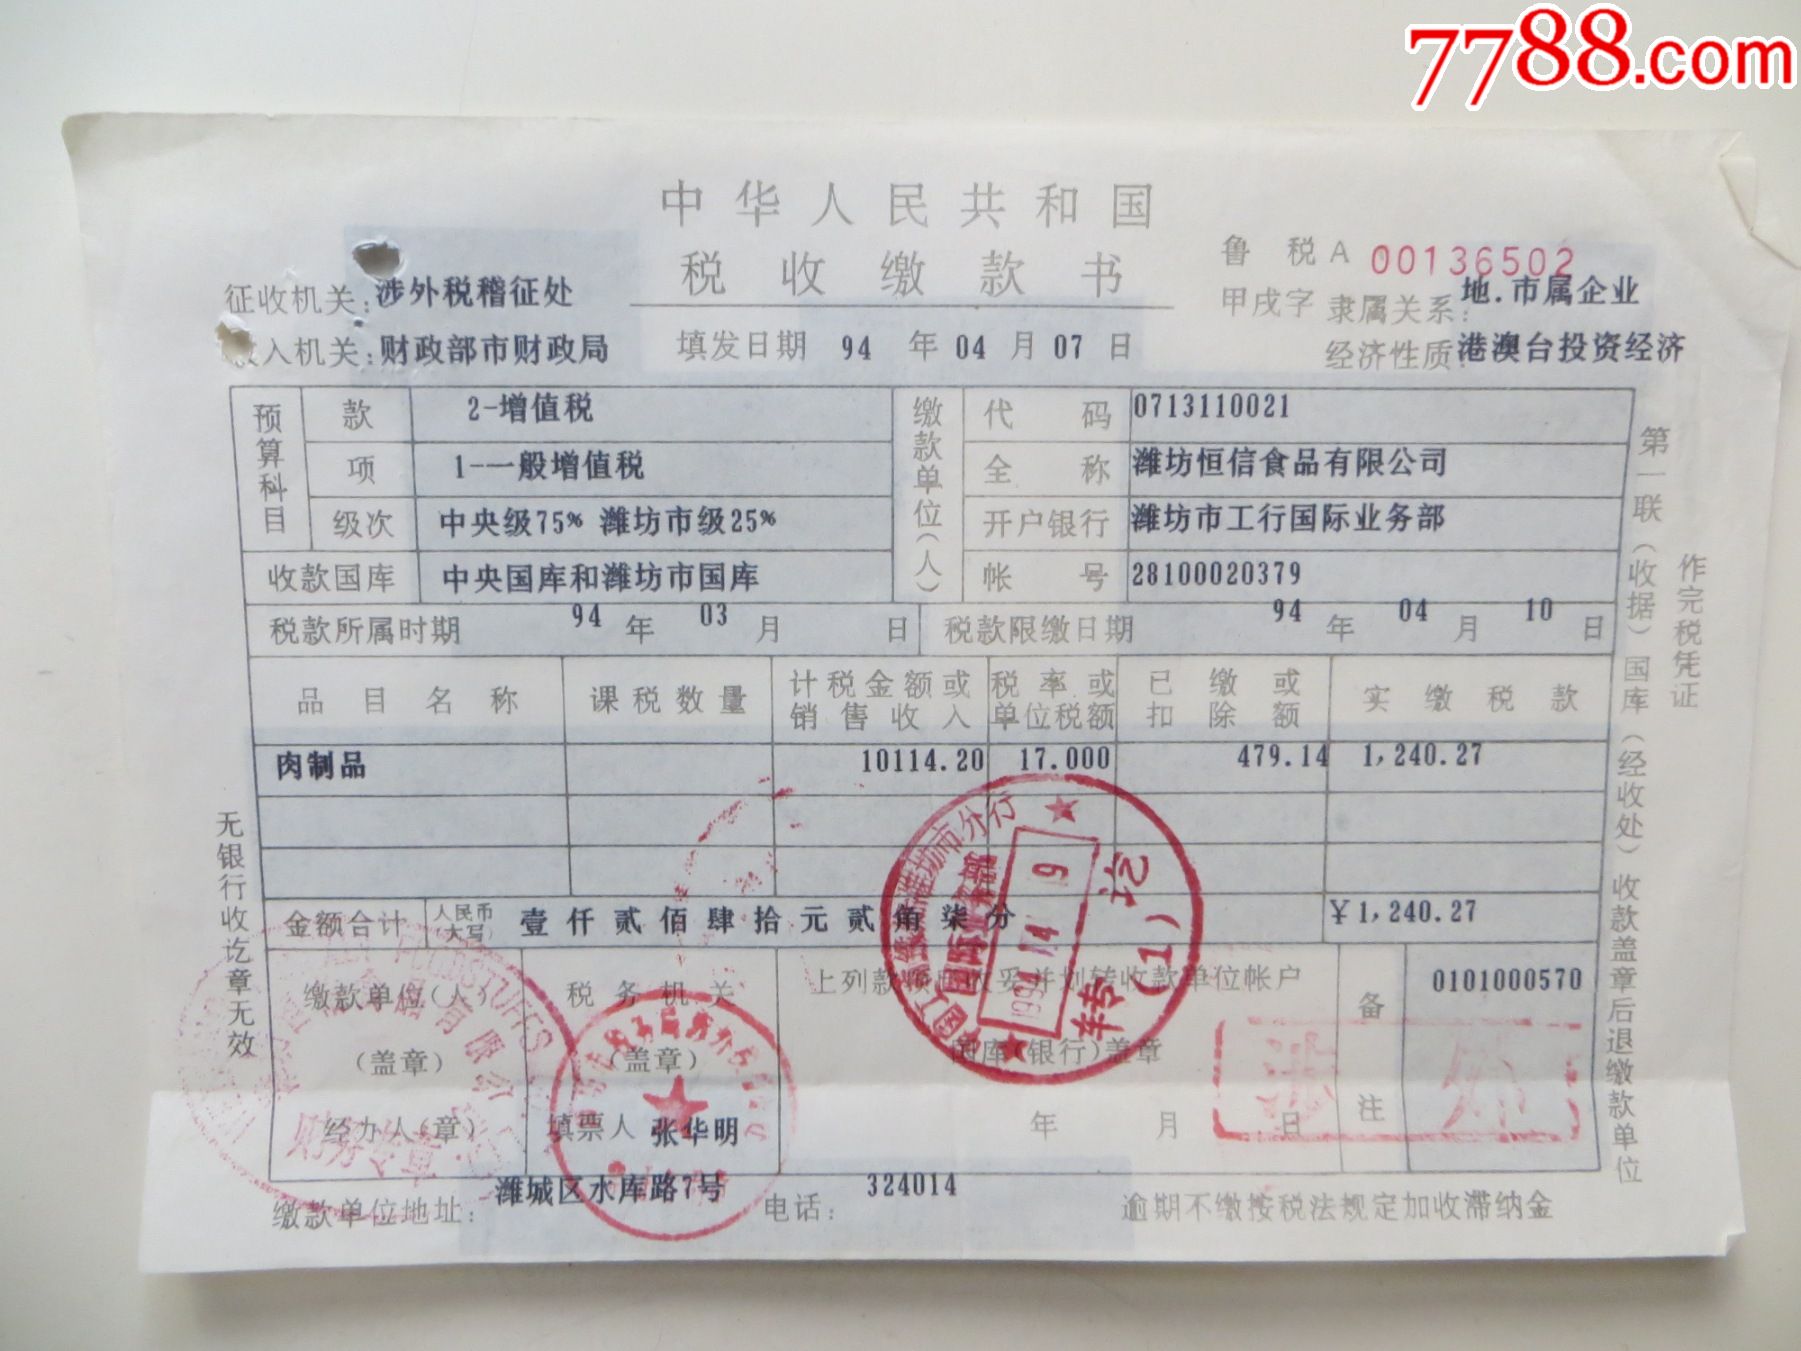 7788.com
中华人民共和国
税收缴款书
鲁税A 00136502
甲戌字
隶属关系:地.市属企业
征收机关:涉外税稽征处
收入机关:财政部市财政局
填发日期 94 年 04 月 07 日
经济性质:港澳台投资经济
预算科目
款 2-增值税
项 1-一般增值税
级次 中央级75% 潍坊市级25%
收款国库 中央国库和潍坊市国库
缴款单位(人)
代码 0713110021
全称 潍坊恒信食品有限公司
开户银行 潍坊市工行国际业务部
帐号 28100020379
税款所属时期 94 年 03 月 日
税款限缴日期 94 年 04 月 10 日
品目名称 课税数量 计税金额或销售收入 税率或单位税额 已缴或扣除额 实缴税款
肉制品 10114.20 17.000 479.14 1,240.27
金额合计 人民币(大写) 壹仟贰佰肆拾元贰角柒分 ¥1,240.27
缴款单位(人)
(盖章)
经办人(章)
税务机关
(盖章)
填票人 张华明
上列款项已收妥并划转收款单位帐户
国库(银行)盖章
年 月 日
备注
0101000570
缴款单位地址: 潍城区水库路7号 电话: 324014 逾期不缴按税法规定加收滞纳金
无银行收讫章无效
第一联(收据)国库(经收处)收款盖章后退缴款单位
作完税凭证
潍坊市分行
国际业务部
1994 4 9
转讫
(1)
FOODSTUFFS
财务专用章
涉外